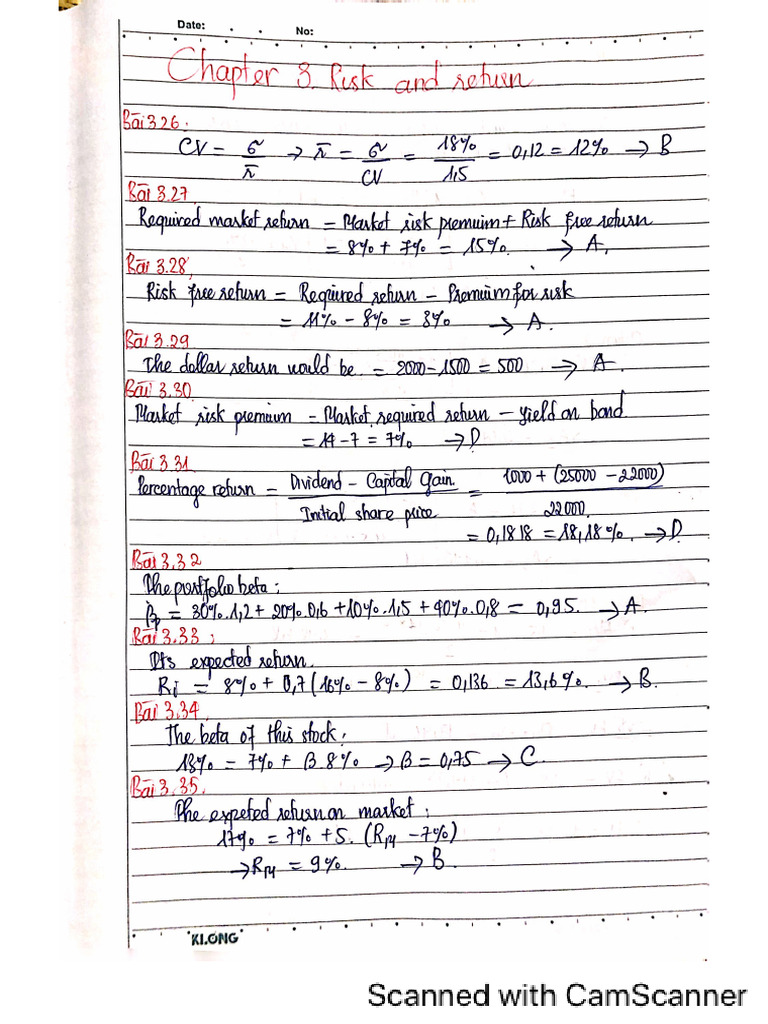 Date: No:
Chapter 3. Risk and return
Bài 3.26.
CV = σ / r̄ → r̄ = σ / CV = 18% / 1,5 = 0,12 = 12% → B
Bài 3.27
Required market return = Market risk premium + Risk free return
= 8% + 7% = 15%. → A,
Bài 3.28,
Risk free return = Required return – Premium for risk
= 11% – 8% = 3% → A.
Bài 3.29
The dollar return would be = 2000 – 1500 = 500 → A.
Bài 3.30
Market risk premium = Market required return – yield on bond
= 14 – 7 = 7% → D.
Bài 3.31
Percentage return = Dividend – Capital Gain / Initial share price = 1000 + (25000 – 22000) / 22000.
= 0,1818 = 18,18%. → D.
Bài 3.32
The portfolio beta:
βp = 30%.1,2 + 20%.0,6 + 10%.1,5 + 40%.0,8 = 0,95. → A.
Bài 3.33:
Its expected return.
Ri = 8% + 0,7 (16% – 8%) = 0,136 = 13,6%. → B.
Bài 3.34,
The beta of this stock:
13% = 7% + β 8% → β = 0,75 → C.
Bài 3.35.
The expeted return on market:
17% = 7% + 5. (RM – 7%)
→ RM = 9%. → B.
KLONG
Scanned with CamScanner